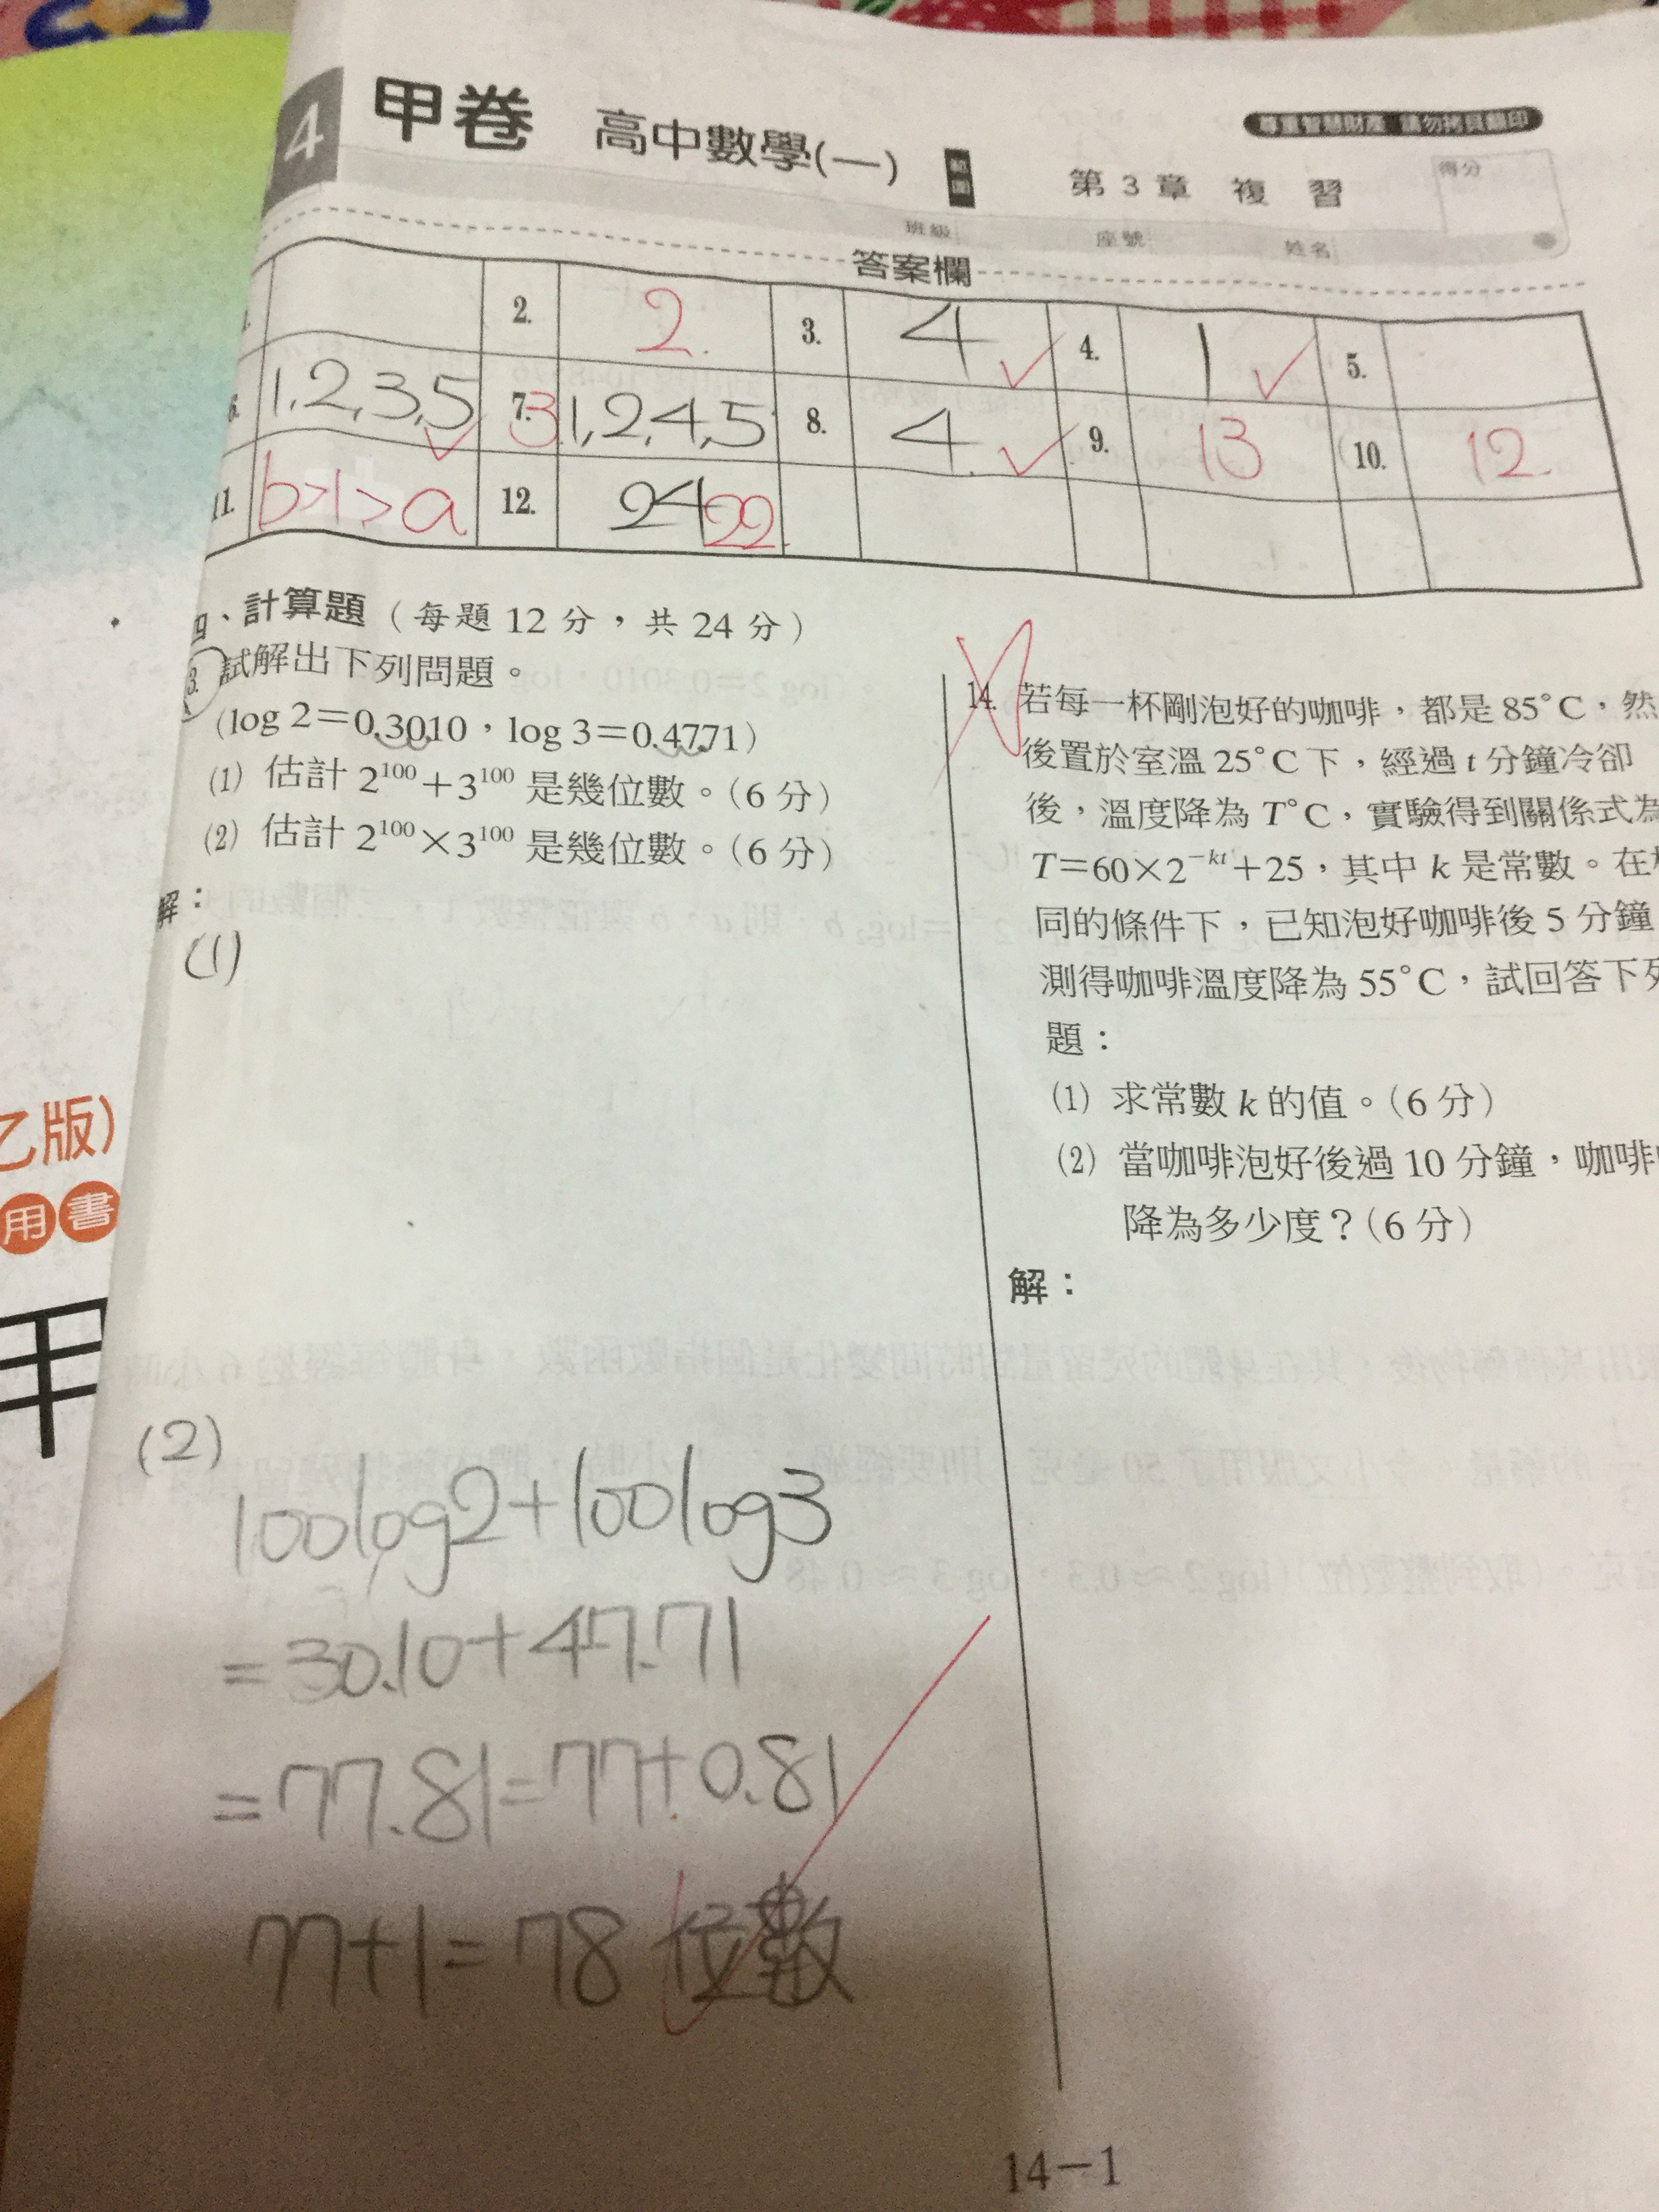 4 甲卷 高中數學(一) 範圍 第3章 複習
尊重智慧財產 請勿拷貝翻印
得分
班級 座號 姓名
答案欄
2. 2. 3. 4 4. 1 5.
1,2,3,5 7. 3 1,2,4,5 8. 4. 9. 13 10. 12.
11. b>1>a 12. 24 22
四、計算題（每題12分，共24分）
3. 試解出下列問題。
(log 2=0.3010，log 3=0.4771)
(1) 估計 2¹⁰⁰+3¹⁰⁰ 是幾位數。(6分)
(2) 估計 2¹⁰⁰×3¹⁰⁰ 是幾位數。(6分)
解：
(1)
(2)
100log2+100log3
=30.10+47.71
=77.81=77+0.81
77+1=78位數
14. 若每一杯剛泡好的咖啡，都是85°C，然
後置於室溫25°C下，經過 t 分鐘冷卻
後，溫度降為 T°C，實驗得到關係式為
T=60×2⁻ᵏᵗ+25，其中 k 是常數。在
同的條件下，已知泡好咖啡後5分鐘
測得咖啡溫度降為55°C，試回答下列
題：
(1) 求常數 k 的值。(6分)
(2) 當咖啡泡好後過10分鐘，咖啡
降為多少度？(6分)
解：
乙版)
用書
甲
14－1